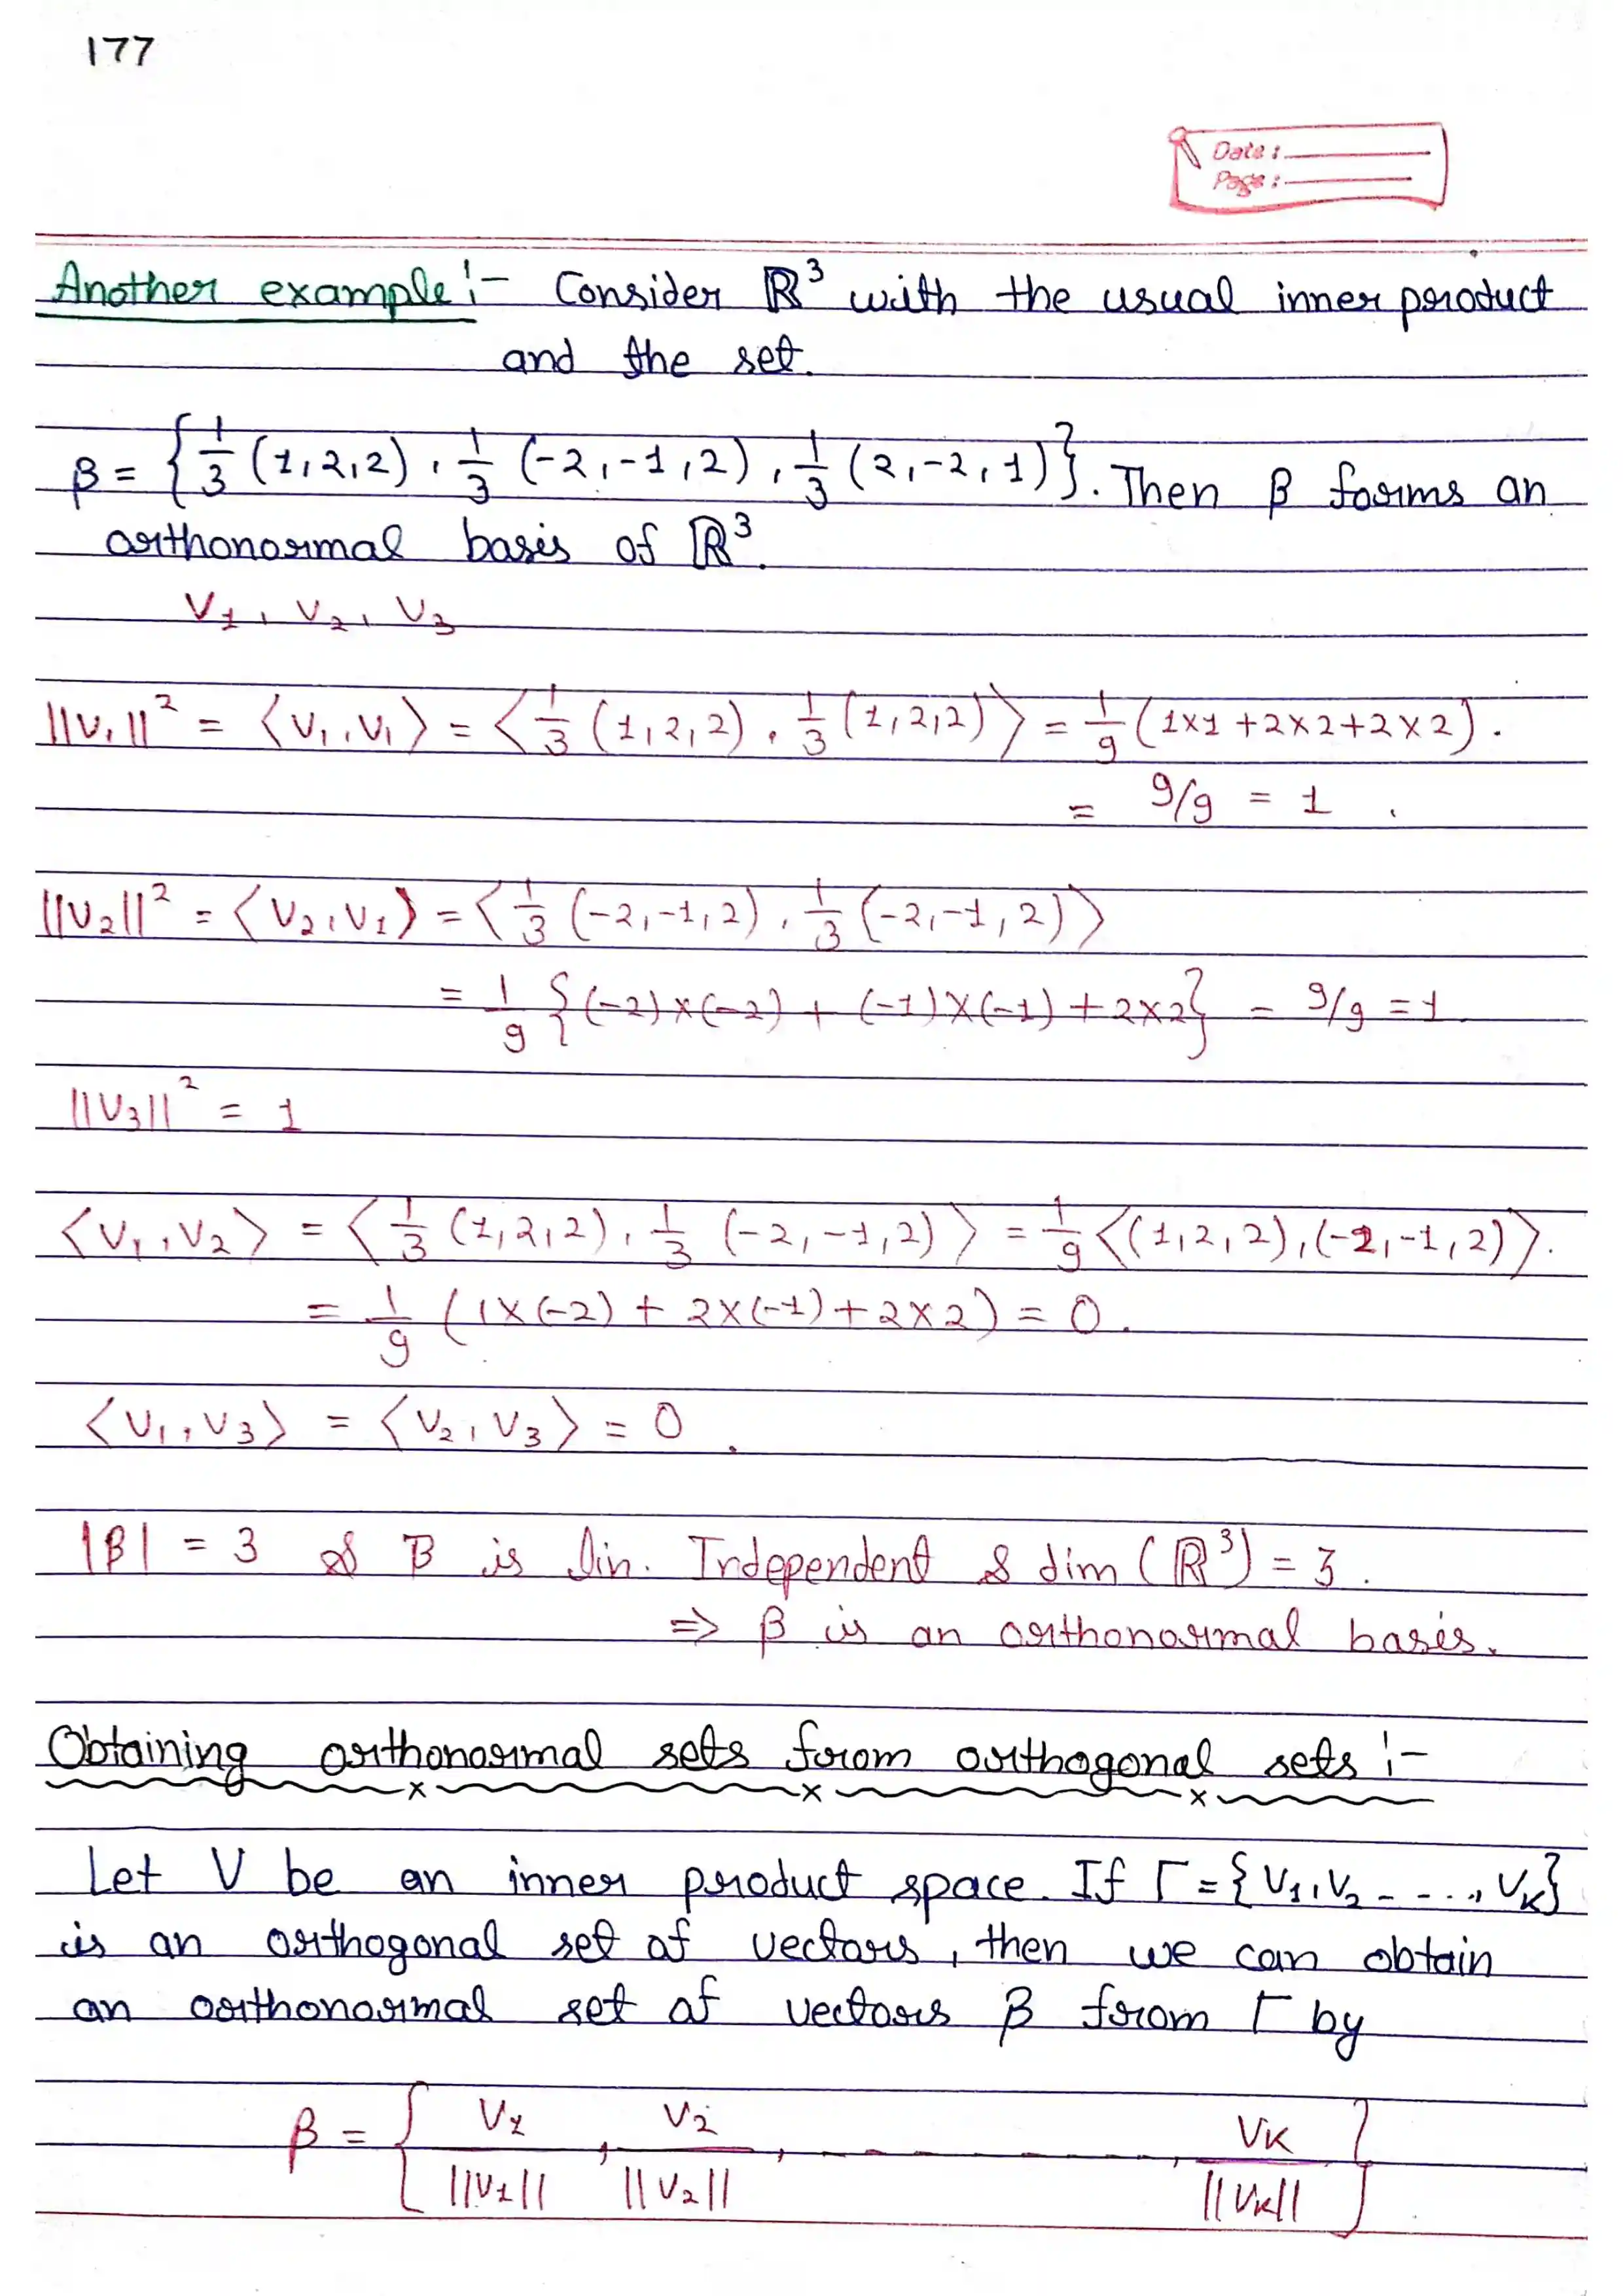 177
Date :
Page :
Another example :- Consider ℝ³ with the usual inner product
and the set.
β = {1/3 (1,2,2), 1/3 (-2,-1,2), 1/3 (2,-2,1)}. Then β forms an
orthonormal basis of ℝ³.
V₁, V₂, V₃
||V₁||² = ⟨V₁,V₁⟩ = ⟨1/3 (1,2,2), 1/3 (1,2,2)⟩ = 1/9 (1×1 +2×2+2×2).
= 9/9 = 1.
||V₂||² = ⟨V₂,V₁⟩ = ⟨1/3 (-2,-1,2), 1/3 (-2,-1,2)⟩
= 1/9 {(-2)×(-2) + (-1)×(-1) + 2×2} = 9/9 = 1
||V₃||² = 1
⟨V₁,V₂⟩ = ⟨1/3 (1,2,2), 1/3 (-2,-1,2)⟩ = 1/9 ⟨(1,2,2),(-2,-1,2)⟩.
= 1/9 (1×(-2) + 2×(-1)+2×2) = 0.
⟨V₁,V₃⟩ = ⟨V₂,V₃⟩ = 0.
|β| = 3 & β is lin. Independent & dim (ℝ³) = 3.
=> β is an orthonormal basis.
Obtaining orthonormal sets from orthogonal sets :-
Let V be an inner product space. If Γ = {V₁,V₂ - - ..., Vₖ}
is an orthogonal set of vectors, then we can obtain
an orthonormal set of vectors β from Γ by
β = {V₁/||V₁||, V₂/||V₂||, - - - - - -, Vₖ/||Vₖ||}